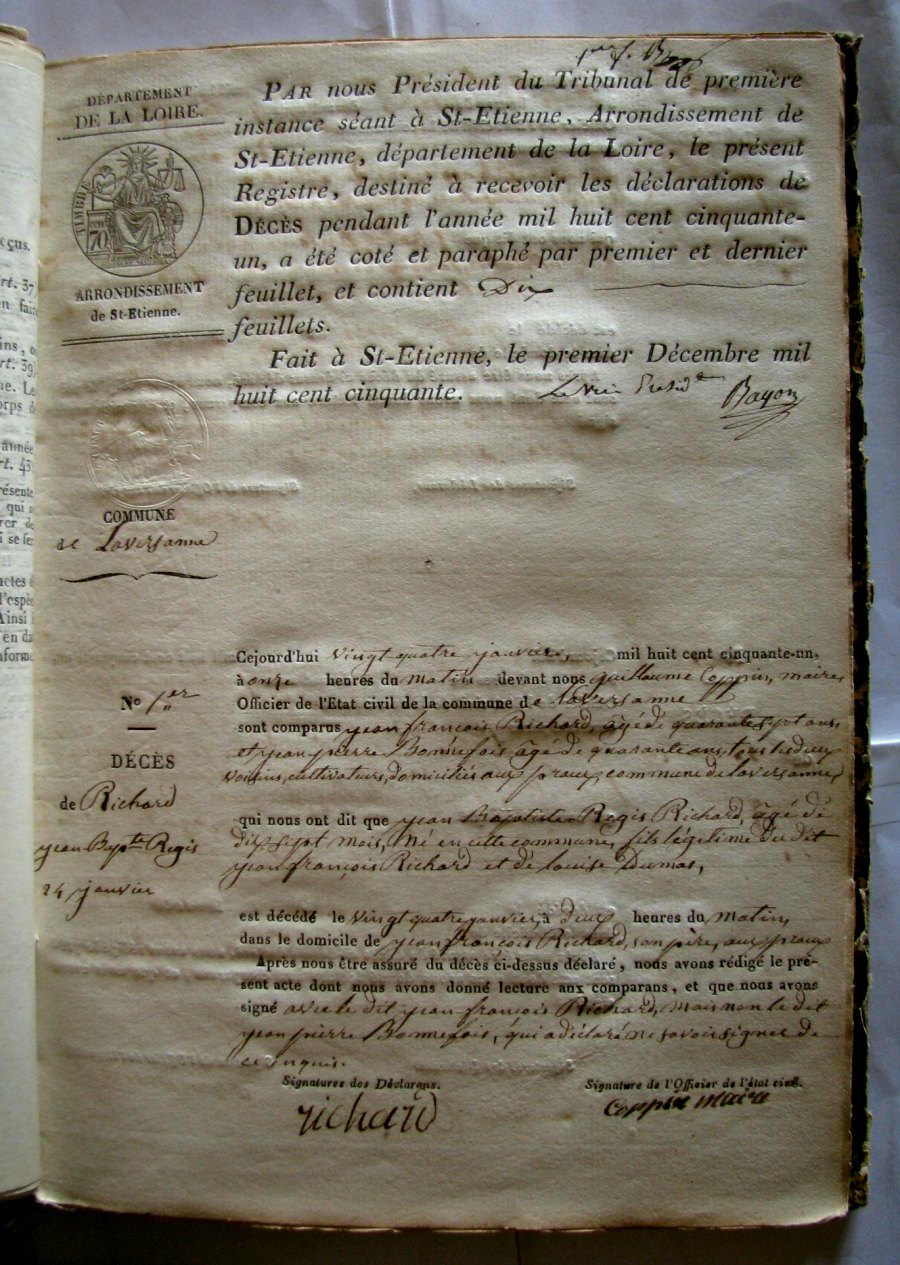 DÉPARTEMENT
DE LA LOIRE.
TIMBRE
70
ARRONDISSEMENT
de St-Etienne.
COMMUNE
de Laversanne
PAR nous Président du Tribunal de première
instance séant à St-Etienne, Arrondissement de
St-Etienne, département de la Loire, le présent
Registre, destiné à recevoir les déclarations de
DÉCÈS pendant l'année mil huit cent cinquante-
un, a été coté et paraphé par premier et dernier
feuillet, et contient Dix
feuillets.
Fait à St-Etienne, le premier Décembre mil
huit cent cinquante. Le vice Presid
Bayon
No 1er
DÉCÈS
de Richard
jean Bapte Regis
24 janvier
Cejourd'hui vingt quatre janvier, mil huit cent cinquante-un,
à onze heures du matin devant nous guillaume Coppin, maire
Officier de l'Etat civil de la commune de laversanne
sont comparus jean françois Richard, âgé de quarante sept ans,
et jean pierre Bonnefois âgé de quarante ans, tous les deux
voisins, cultivateurs, domiciliés aux praux, commune de laversanne,
qui nous ont dit que jean Baptiste Regis Richard, âgé de
dix sept mois, né en cette commune, fils légitime du dit
jean françois Richard et de louise Dumas,
est décédé le vingt quatre janvier, à deux heures du matin,
dans le domicile de jean françois Richard, son père, aux praux
Après nous être assuré du décès ci-dessus déclaré, nous avons rédigé le pré-
sent acte dont nous avons donné lecture aux comparans, et que nous avons
signé avec le dit jean-françois Richard, mais non le dit
jean pierre Bonnefois, qui a déclaré ne savoir signer de
ce enquis.
Signatures des Déclarans.
richard
Signature de l'Officier de l'état civil.
Coppin maire
eçus,
rt. 37